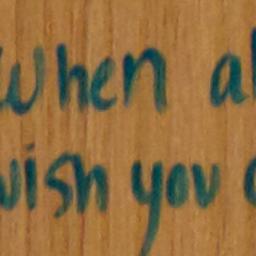 When al
wish you